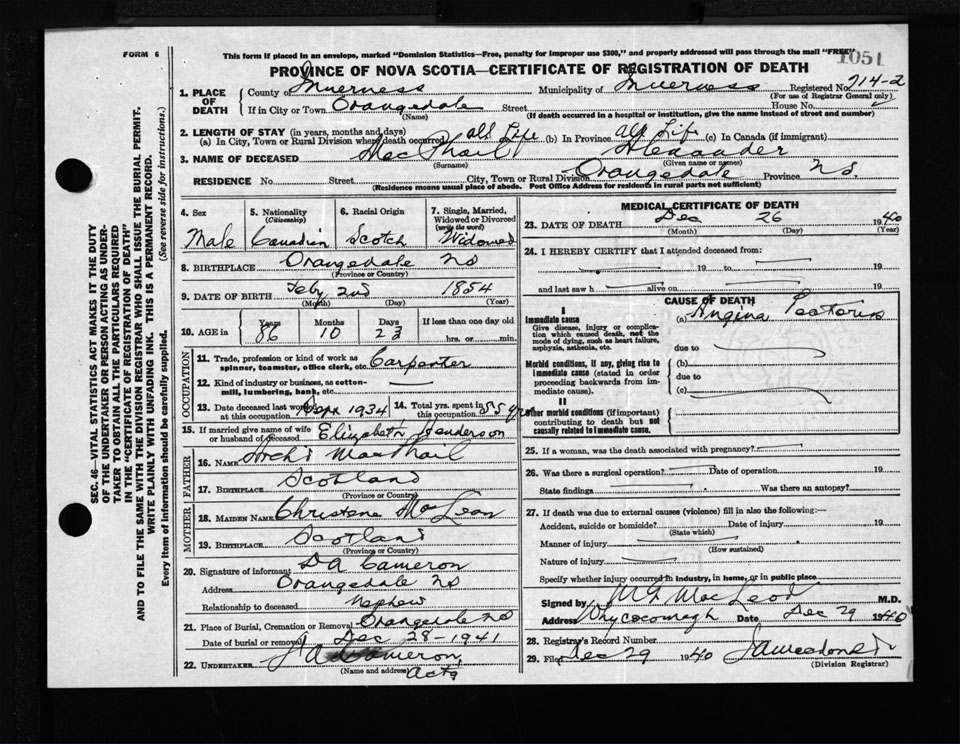 FORM 6
This form if placed in an envelope, marked "Dominion Statistics—Free, penalty for improper use $300," and properly addressed will pass through the mail "FREE"
1051
PROVINCE OF NOVA SCOTIA—CERTIFICATE OF REGISTRATION OF DEATH
1. PLACE OF DEATH County of Inverness Municipality of Inverness Registered No. 714-2
(For use of Registrar General only)
If in City or Town Orangedale Street House No.
(Name) (If death occurred in a hospital or institution, give the name instead of street and number)
2. LENGTH OF STAY (in years, months and days)
(a) In City, Town or Rural Division where death occurred all Life (b) In Province all Life (c) In Canada (if immigrant)
3. NAME OF DECEASED MacPhail Alexander
(Surname) (Given name or names)
RESIDENCE No. Street City, Town or Rural Division Orangedale Province NS.
(Residence means usual place of abode. Post Office Address for residents in rural parts not sufficient)
SEC. 46—VITAL STATISTICS ACT MAKES IT THE DUTY
OF THE UNDERTAKER OR PERSON ACTING AS UNDER-
TAKER TO OBTAIN ALL THE PARTICULARS REQUIRED
IN THE "CERTIFICATE OF REGISTRATION OF DEATH"
AND TO FILE THE SAME WITH THE DIVISION REGISTRAR WHO SHALL ISSUE THE BURIAL PERMIT.
WRITE PLAINLY WITH UNFADING INK. THIS IS A PERMANENT RECORD.
Every item of information should be carefully supplied. (See reverse side for instructions.)
4. Sex 5. Nationality (Citizenship) 6. Racial Origin 7. Single, Married, Widowed or Divorced (write the word)
Male Canadian Scotch Widowed
8. BIRTHPLACE Orangedale NS
(Province or Country)
9. DATE OF BIRTH Feby 2nd 1854
(Month) (Day) (Year)
10. AGE in Years Months Days If less than one day old
86 10 23 hrs. or min.
OCCUPATION
11. Trade, profession or kind of work as spinner, teamster, office clerk, etc. Carpenter
12. Kind of industry or business, as cotton-mill, lumbering, bank, etc.
13. Date deceased last worked at this occupation 1934 14. Total yrs. spent in this occupation 55 yrs
15. If married give name of wife or husband of deceased Elizabeth Henderson
FATHER
16. NAME Archi MacPhail
17. BIRTHPLACE Scotland
(Province or Country)
MOTHER
18. MAIDEN NAME Christene MacLean
19. BIRTHPLACE Scotland
(Province or Country)
20. Signature of informant D A Cameron
Address Orangedale NS
Relationship to deceased Nephew
21. Place of Burial, Cremation or Removal Orangedale NS
Date of burial or removal Dec 28-1941
22. UNDERTAKER Cameron
(Name and address) Actg
MEDICAL CERTIFICATE OF DEATH
23. DATE OF DEATH Dec 26 1940
(Month) (Day) (Year)
24. I HEREBY CERTIFY that I attended deceased from:
19 to 19
and last saw h alive on 19
CAUSE OF DEATH
I
Immediate cause (a) Angina Pectoris
Give disease, injury or complica-
tion which caused death, not the
mode of dying, such as heart failure,
asphyxia, asthenia, etc.
due to
Morbid conditions, if any, giving rise to (b)
immediate cause (stated in order due to
proceeding backwards from im-
mediate cause). (c)
II
Other morbid conditions (if important)
contributing to death but not
causally related to immediate cause.
25. If a woman, was the death associated with pregnancy?
26. Was there a surgical operation? Date of operation 19
State findings Was there an autopsy?
27. If death was due to external causes (violence) fill in also the following:—
Accident, suicide or homicide? Date of injury 19
(State which)
Manner of injury
(How sustained)
Nature of injury
Specify whether injury occurred in industry, in home, or in public place
Signed by MacLeod M.D.
Address Whycocomagh Date Dec 29 1940
28. Registry's Record Number
29. Filed Dec 29 1940
(Division Registrar)